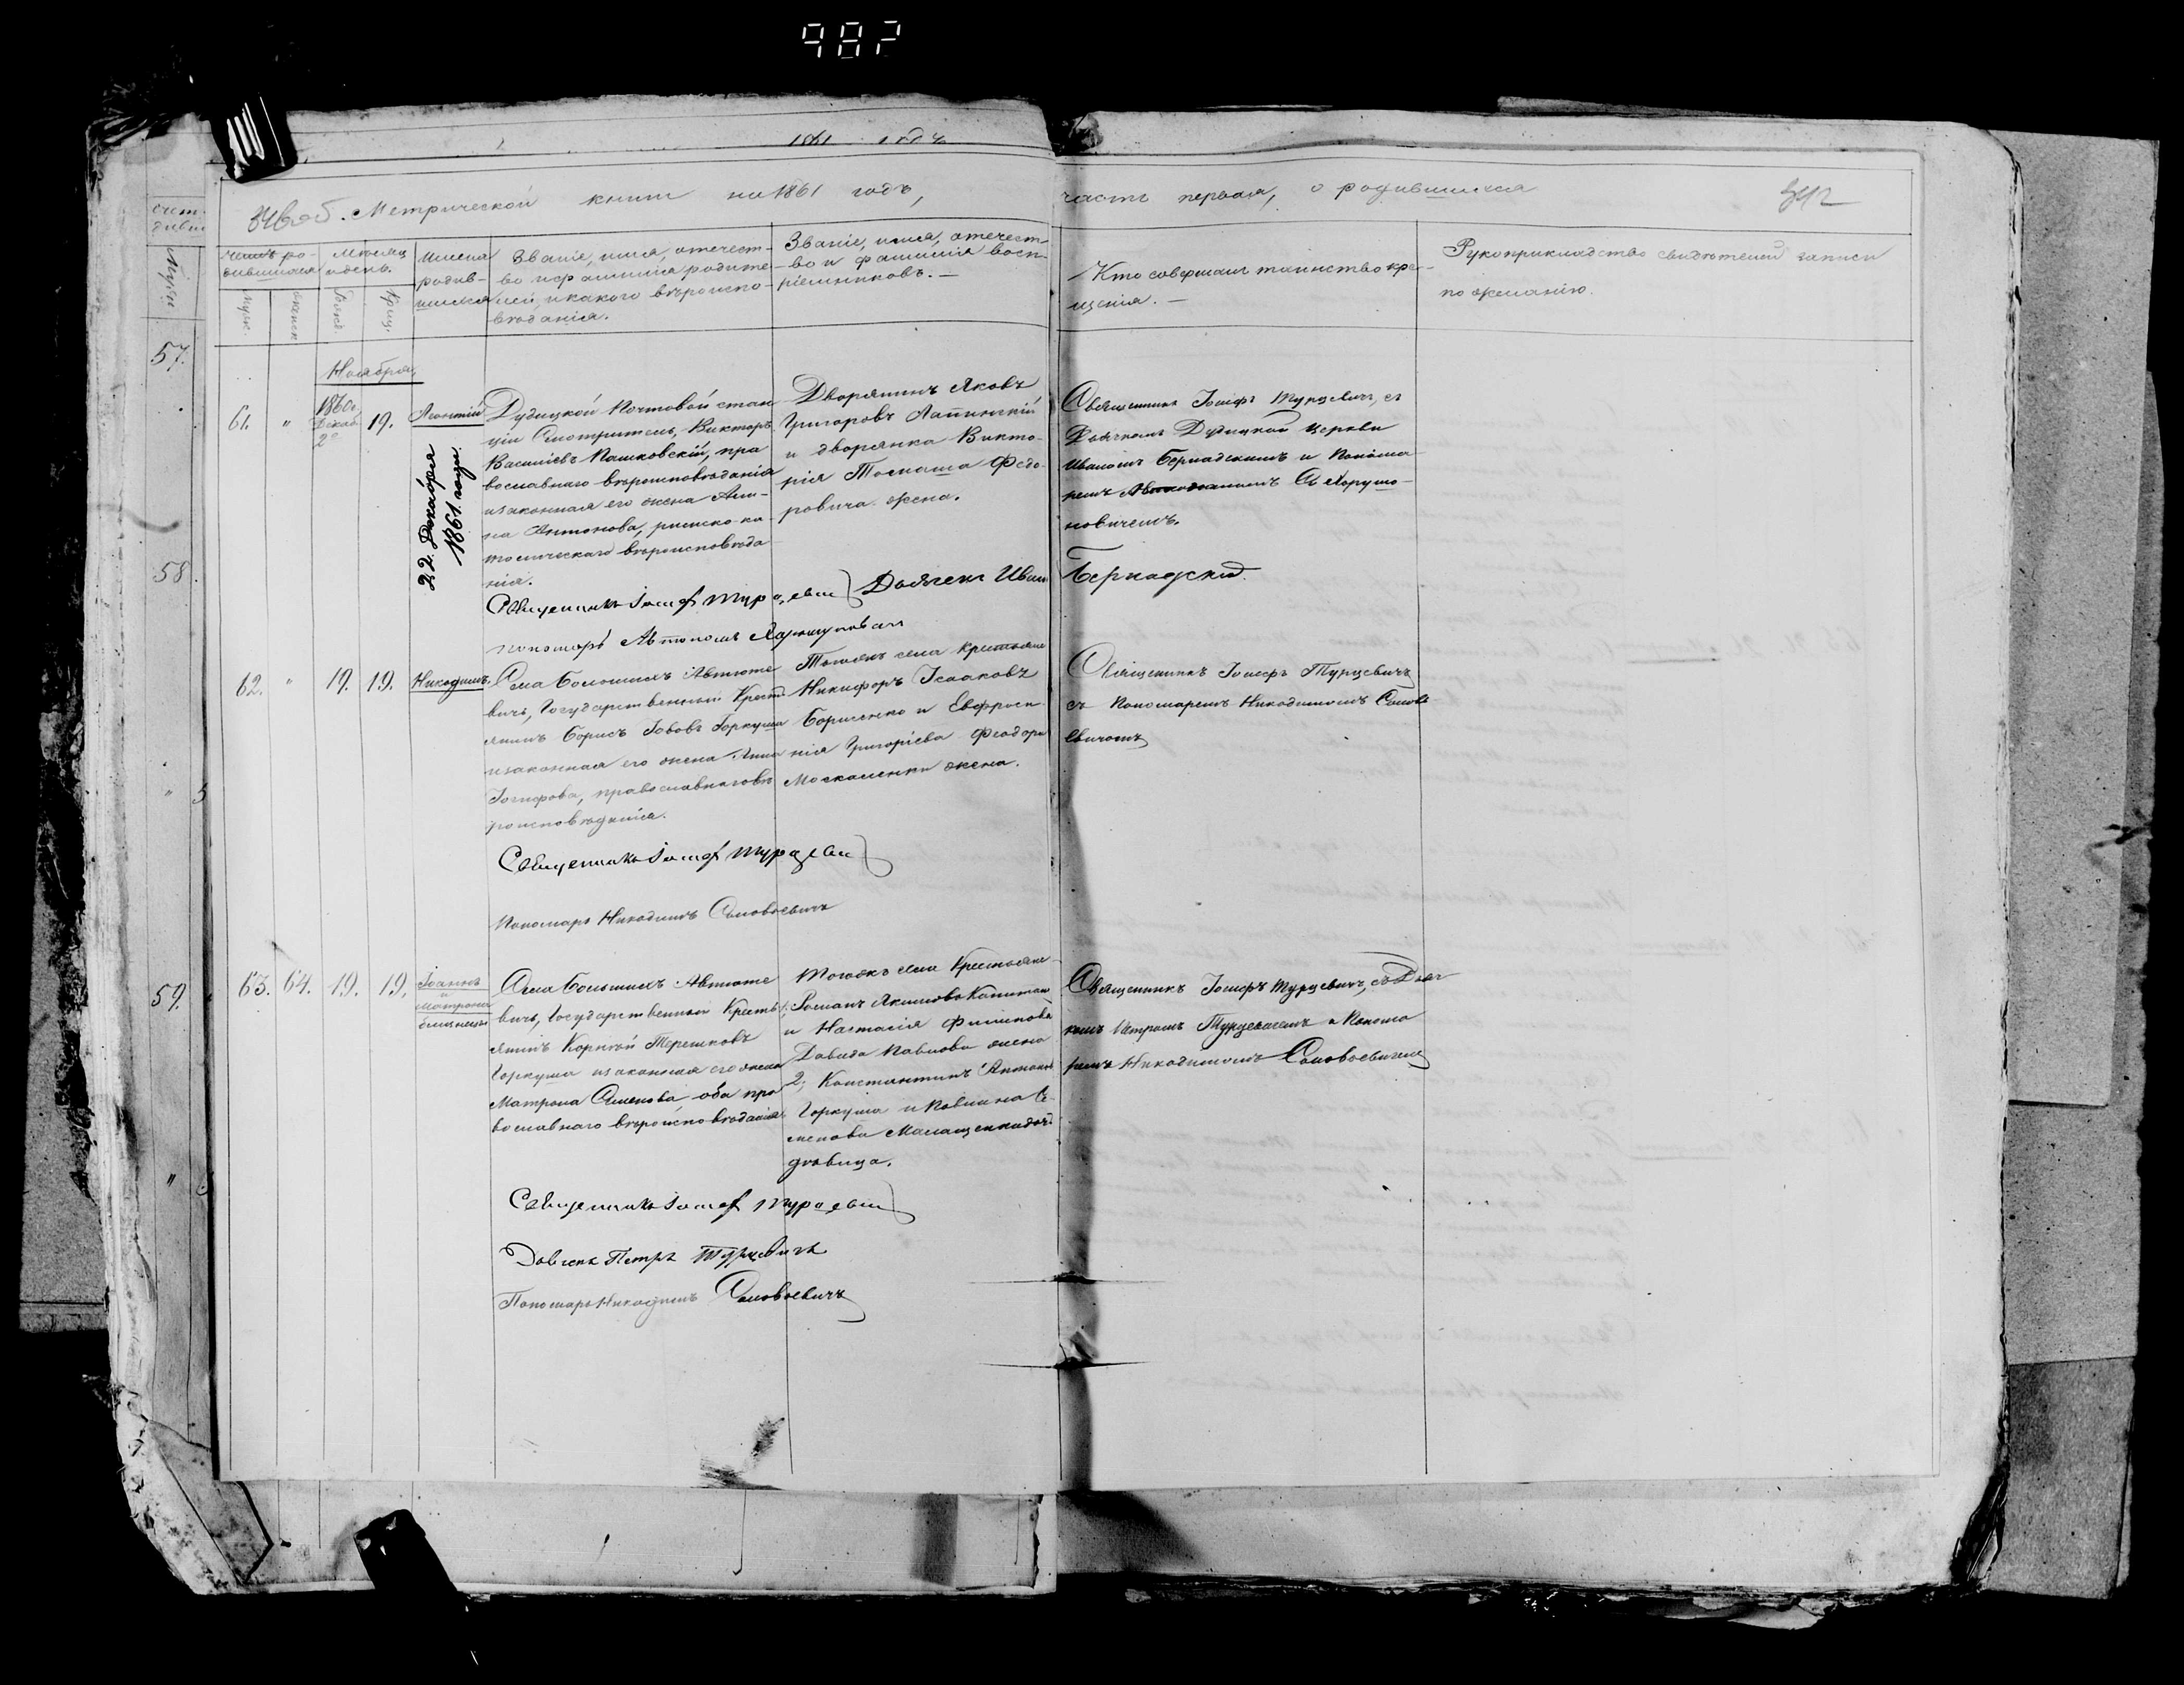 982
Метрической книги на 1861 годъ, часть первая, о родившихся
342
Счетъ ро-
дившихся
Муж.
Женск.
Мѣсяц
и день.
Рожд.
Крещ.
Имена
родив-
шихся
Званіе, имя, отечест-
во и фамилія родите-
лей, и какого вѣроиспо-
вѣданія.
Званіе, имя, отечест-
во и фамилія восп-
ріемниковъ.
Кто совершалъ таинство кре-
щенія.
Рукоприкладство свидѣтелей записи
по желанію.
57.
58.
59.
Ноября
61.
"
1860 г.
Декаб.
2
19.
Леонтій
22. Декабря
1861. года.
Дудицкой Почтовой стан
ціи Смотритель, Викторъ
Василіевъ Пашковскій, пра
вославнаго вѣроисповѣданія
и законная его жена Ан-
на Антонова, римско-ка
толическаго вѣроисповѣда
нія.
Дворянинъ Яковъ
Григоровъ Лапинскій
и дворянка Викто-
рія Томаша Федо-
ровича жена.
Священникъ Іосифъ Турцевичъ, съ
Дьячкомъ Дудицкой Церкви
Иваномъ Бернадскимъ и Понома
ремъ
новичемъ.
Священникъ Іосиф Турцевич Дьячекъ Иван Бернадскій
пономарь Автоном
62.
"
19.
19.
Никодимъ.
Села Большихъ Автюте
вичь, Государственный Крестъ
янинъ Борисъ Горкуша
и законная его жена Анна
Іосифова, православнаго вѣ
роисповѣданія.
Тогожъ села Крестьяне
Никифоръ Ісааковъ
Борисенко и Евфроси
нія Григоріева Феодора
Москаленки жена.
Священникъ Іосифъ Турцевичъ
съ Пономаремъ Никодимомъ Солов
евичомъ
Священникъ Іосиф Турцевич
Пономарь Никодимъ Соловьевичъ
63.
64.
19.
19.
Іоаннъ
и
Матрона
близнецы
Села Большихъ Автюте
вичь, Государственный Кресть
янинъ Корнѣй Терешковъ
Горкуша и законная его жена
Матрона Семенова оба пра
вославнаго вѣроисповѣданія.
Тогожъ села Крестьяне
1; Романъ Якимовъ Капитан
и Настасія Филипова
Давида Павлова жена
2; Константинъ Антонов
Горкуша и Павлина Се-
менова Малащенки доч
дѣвица.
Священникъ Іосифъ Турцевичъ, съ Дьяч
комъ Петромъ Турцевичемъ и Понома
ремъ Никодимомъ Соловьевичемъ
Священникъ Іосиф Турцевич
Дьячекъ Петръ Турцевичъ
Пономарь Никодимъ Соловьевичъ